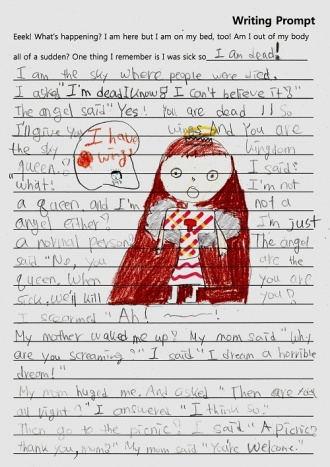 Writing Prompt
Eeek! What's happening? I am here but I am on my bed, too! Am I out of my body
all of a sudden? One thing I remember is I was sick so I am dead!
I am the sky where people were died.
I asked "I'm dead! I know? I can't believe it?"
The angel said "Yes! you are dead!! So
I'll give you wings And You are
I have wings
the sky kingdom
queen." I said?
"what! I'm not
a queen, and I'm not a
angel either? I'm just
a normal person. The angel
said "No, you are the
queen. When you are
sick, we'll kill you?
I screamed "Ah! !
My mother waked me up? My mom said "why
are you screaming?" I said "I dream a horrible
dream!"
My mom huged me. And asked "Then are you
all right?" I answeres "I think so."
Then go to the picnic? I said "A picnic?
thank you, mum?" My mom said "You're welcome."